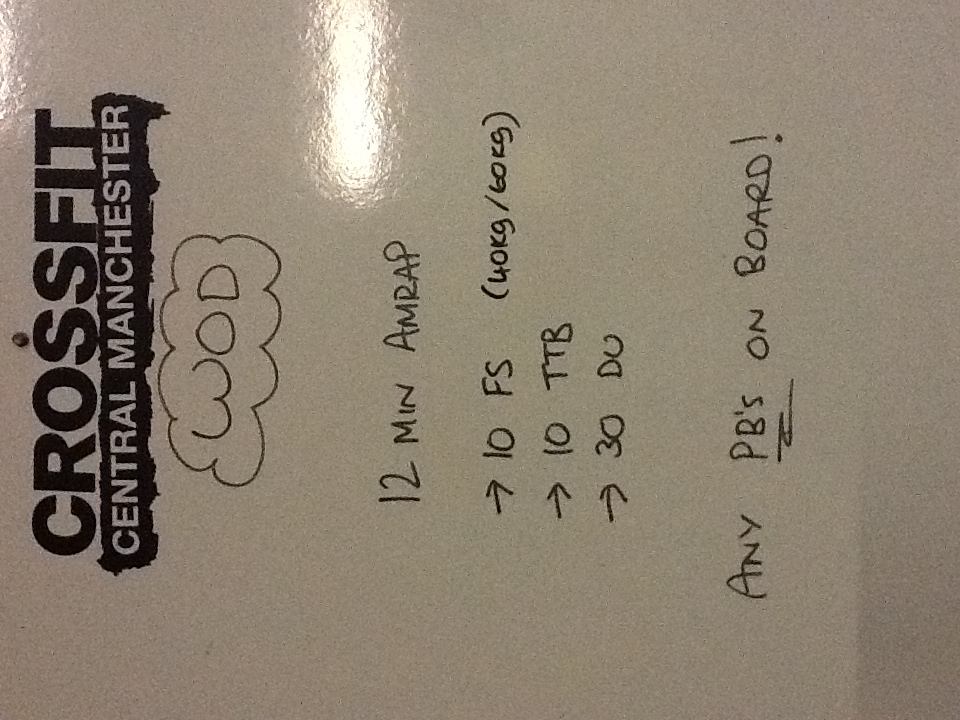 CROSSFIT
CENTRAL MANCHESTER
WOD
12 MIN AMRAP
→ 10 FS (40kg/60kg)
→ 10 TTB
→ 30 DU
ANY PB's ON BOARD!